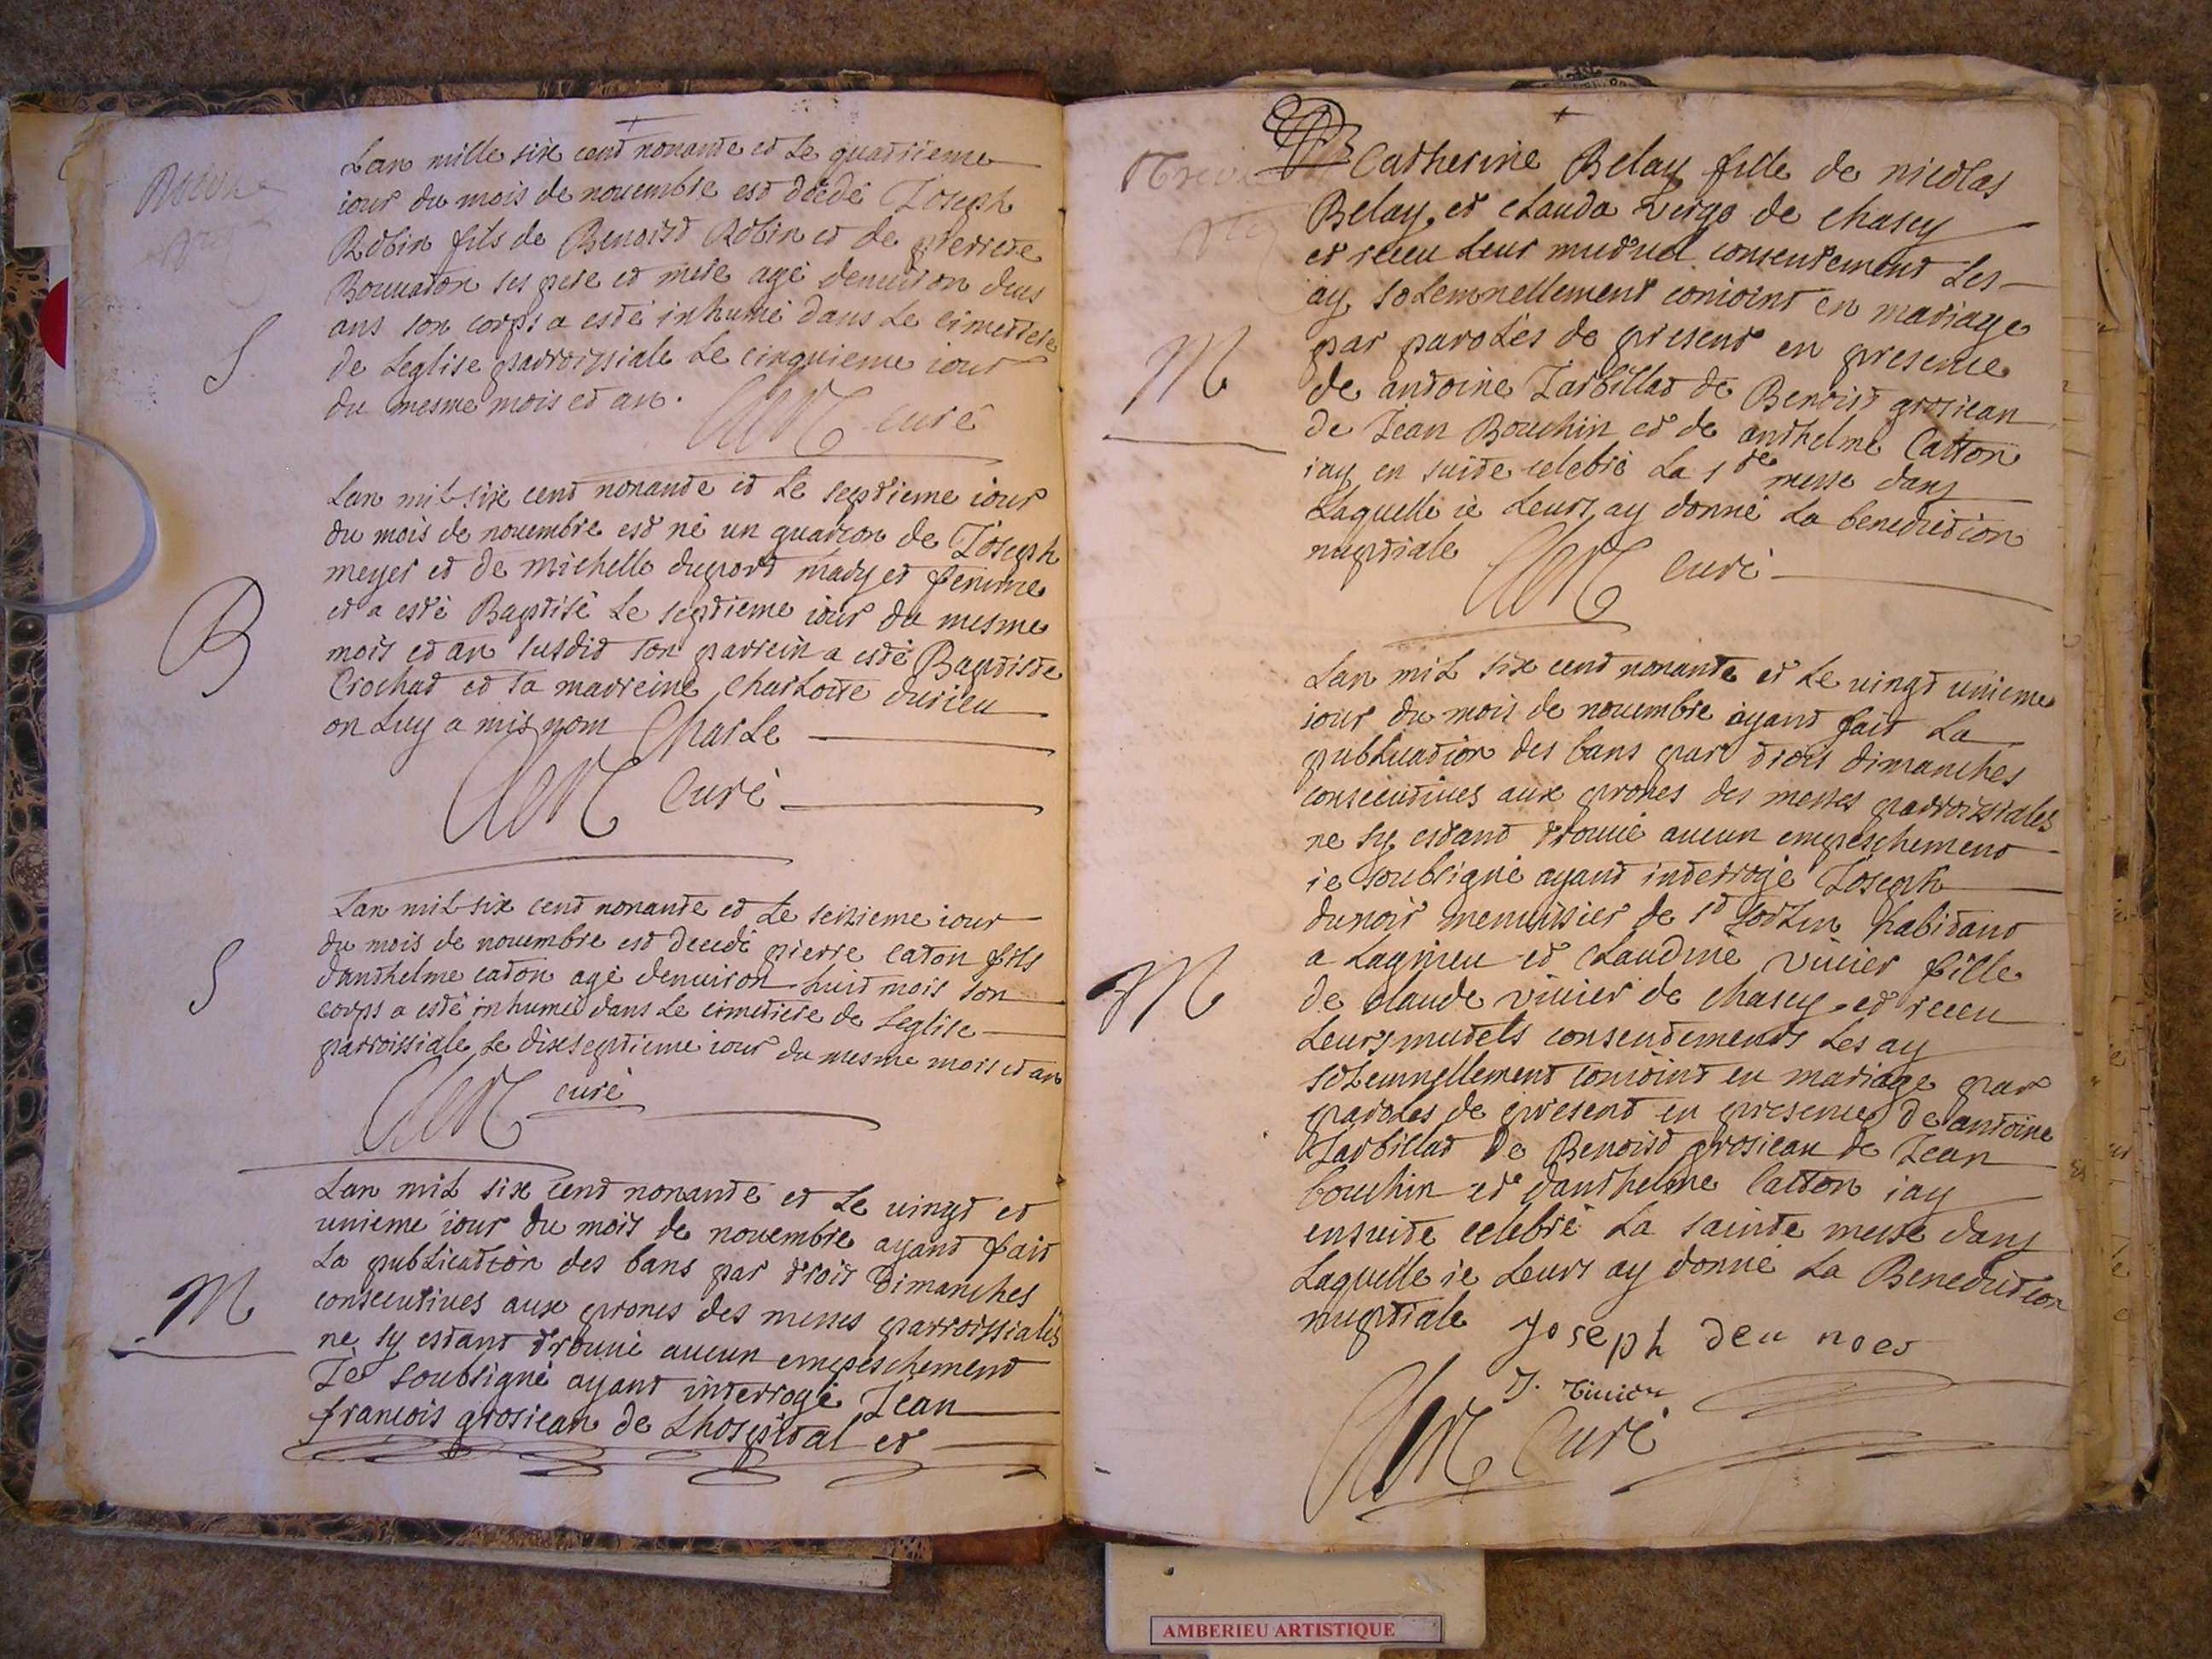 Lan mille six cent nonante et Le quatrieme
iour du mois de nouembre est decedé Joseph
Robin fils de Benoist Robin et de pierrete
Bouuaton ses pere et mere agé denuiron deus
ans son corps a esté inhumé dans Le cimettere
S
de Leglise parroissiale Le cinquieme iour
du mesme mois et an.
curé
Lan mil six cent nonante et Le septieme iour
du mois de nouembre est né un guarcon de Joseph
meyer et de michelle duport mary et femme
B
et a esté Baptisé Le septieme iour du mesme
mois et an susdit son parrein a esté Baptiste
Crochat et sa marreine Charlotte durieu
on Luy a mis nom Charle
Curé
Lan mil six cent nonante et Le seizieme iour
du mois de nouembre est decedé pierre Caton fils
S
danthelme caton agé denuiron huit mois son
corps a esté inhumé dans Le cimetiere de Leglise
parroissiale Le dixseptieme iour du mesme mois et an
curé
Lan mil six cent nonante et Le vingt et
unieme iour du mois de nouembre ayant fait
La publication des bans par trois Dimanches
M
consecutiues aux prones des messes parroissiales
ne sy estant trouué aucun empeschement
Je soubsigné ayant interrogé Jean
francois grosiean de Lhospital et
Catherine Belay fille de nicolas
Belay, et Clauda verge de chasey
et receu Leur mutuel consentement Les
ay solemnellement conioint en mariage
par paroles de present en presence
M
de antoine Jarbillat de Benoist grosiean
de Jean Bouchin et de anthelme Catton
iay en suite celebré La ste messe dans
Laquelle ie Leurs ay donné La benediction
nuptiale
Curé
Lan mil six cent nonante et Le vingt unieme
iour du mois de nouembre ayant fait La
publication des bans par trois dimanches
consecutiues aux prones des messes parroissiales
ne sy estant trouué aucun empeschement
ie soubsigné ayant interrogé Joseph
dunoir menuisier de st sorlin habitant
a Lagnieu et Claudine viuier fille
M
de claude viuier de chasey et receu
Leurs mutels consentements Les ay
solemnellement conioint en mariage par
paroles de present en presence de antoine
Jarbillat de Benoist grosiean de Jean
bouchin et danthelme Catton iay
ensuite celebré La sainte messe dans
Laquelle ie Leurs ay donné La Benediction
nuptiale
Joseph
Curé
AMBERIEU ARTISTIQUE